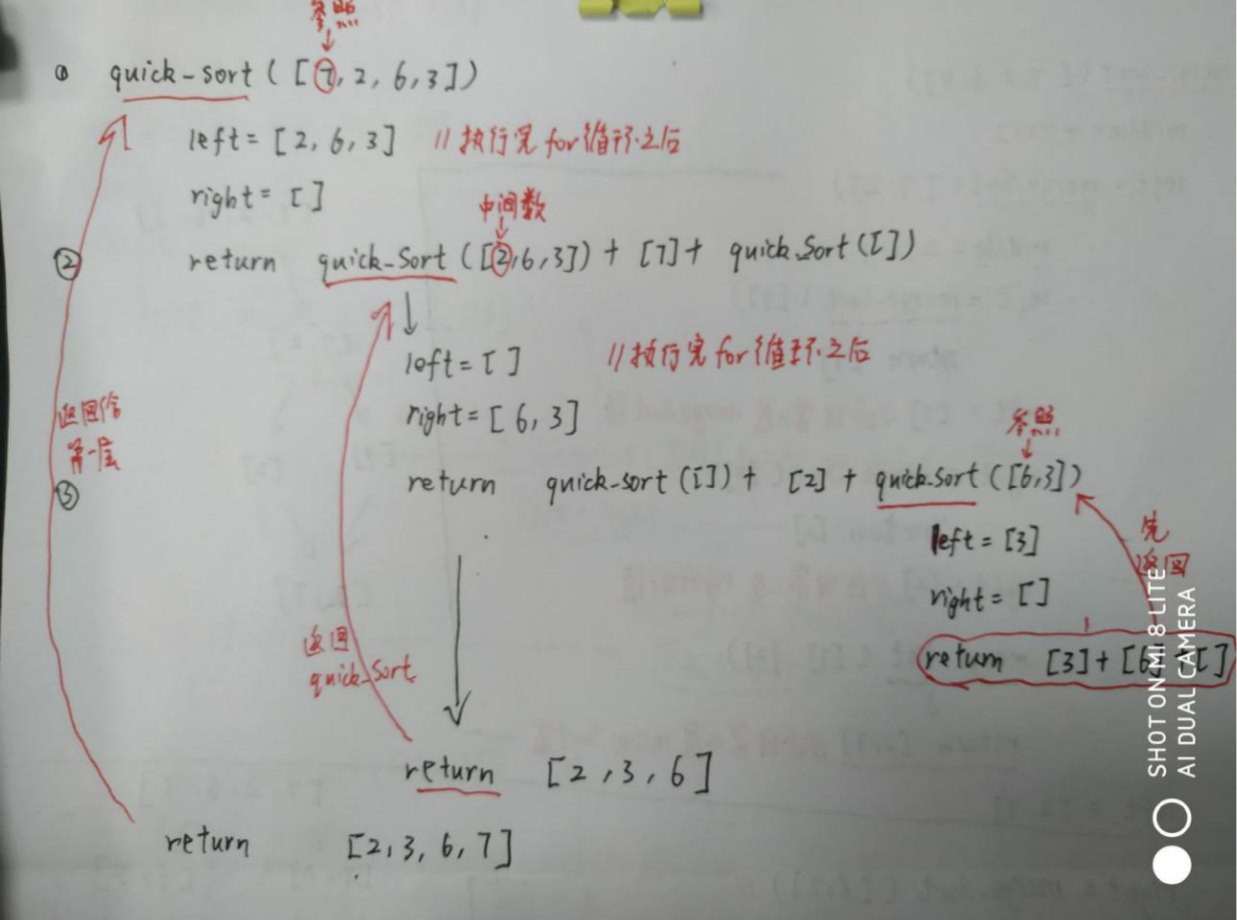 参照
① quick-sort ( [ 7, 2, 6, 3 ] )
left = [ 2, 6, 3 ] // 执行完 for 循环之后
right = [ ]
中间数
② return quick-Sort ( [2,6,3] ) + [7] + quick-Sort ( [ ] )
left = [ ] // 执行完 for 循环之后
right = [ 6, 3 ]
返回给
第一层
参照
③ return quick-sort ( [ ] ) + [2] + quick-sort ( [6,3] )
left = [3]
先
返回
right = [ ]
返回
quick-Sort
return [3] + [6] + [ ]
return [ 2 , 3 , 6 ]
return [ 2, 3, 6, 7 ]
SHOT ON MI 8 LITE
AI DUAL CAMERA